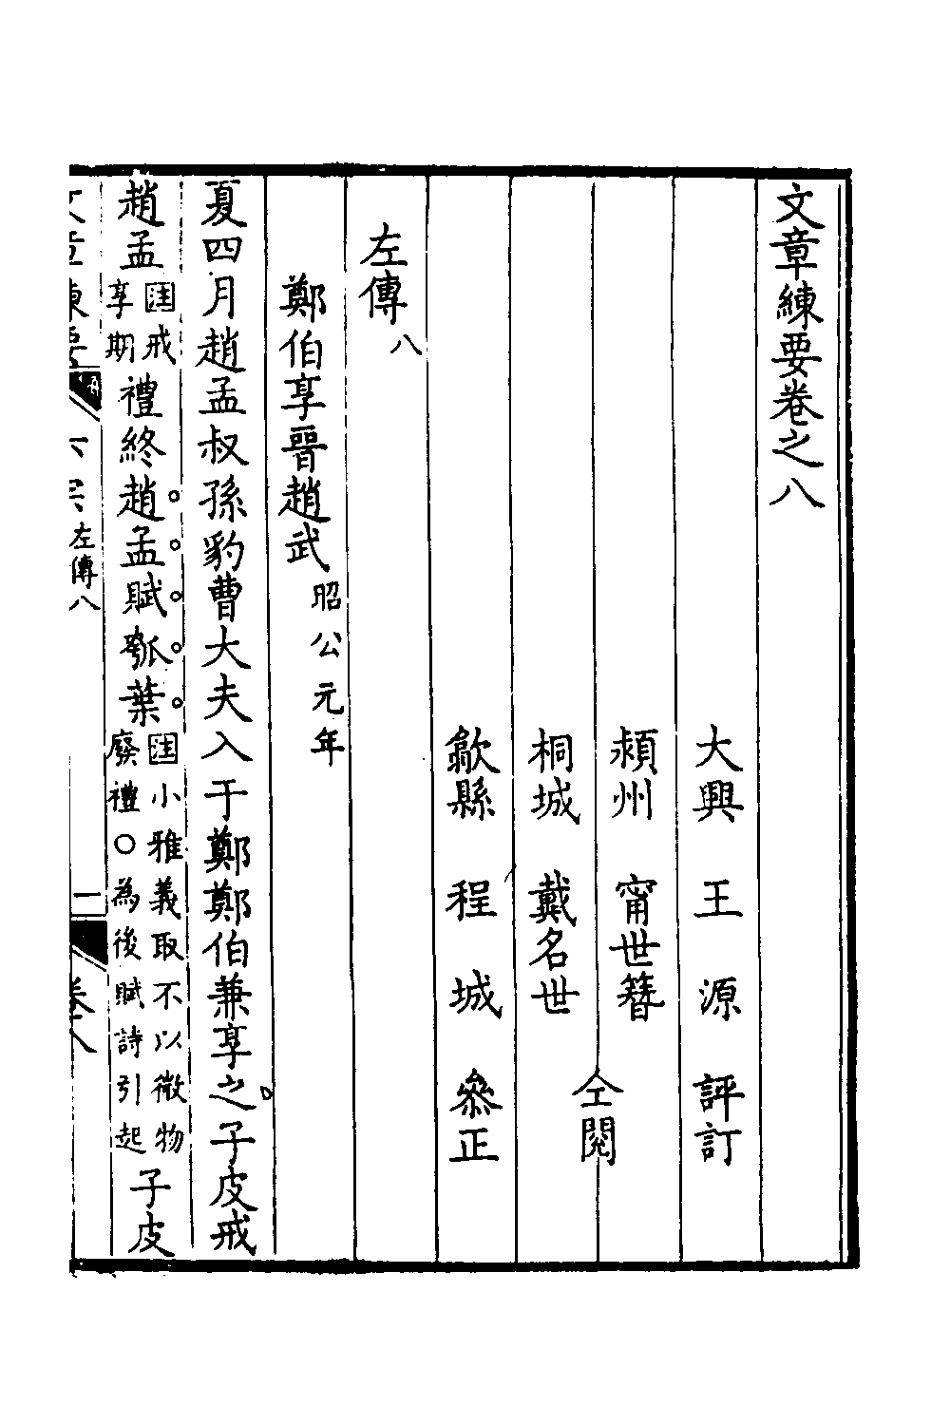 文章練要卷之八
大興　王　源　評訂
潁州　甯世簪
桐城　戴名世
仝閱
歙縣　程　城　叅正
左傳八
鄭伯享晉趙武昭公元年
夏四月趙孟叔孫豹曹大夫入于鄭鄭伯兼享之子皮戒
趙孟註戒享期禮終趙孟賦瓠葉註小雅義取不以微物廢禮○為後賦詩引起子皮
文章練要
六宗左傳八
一
卷八